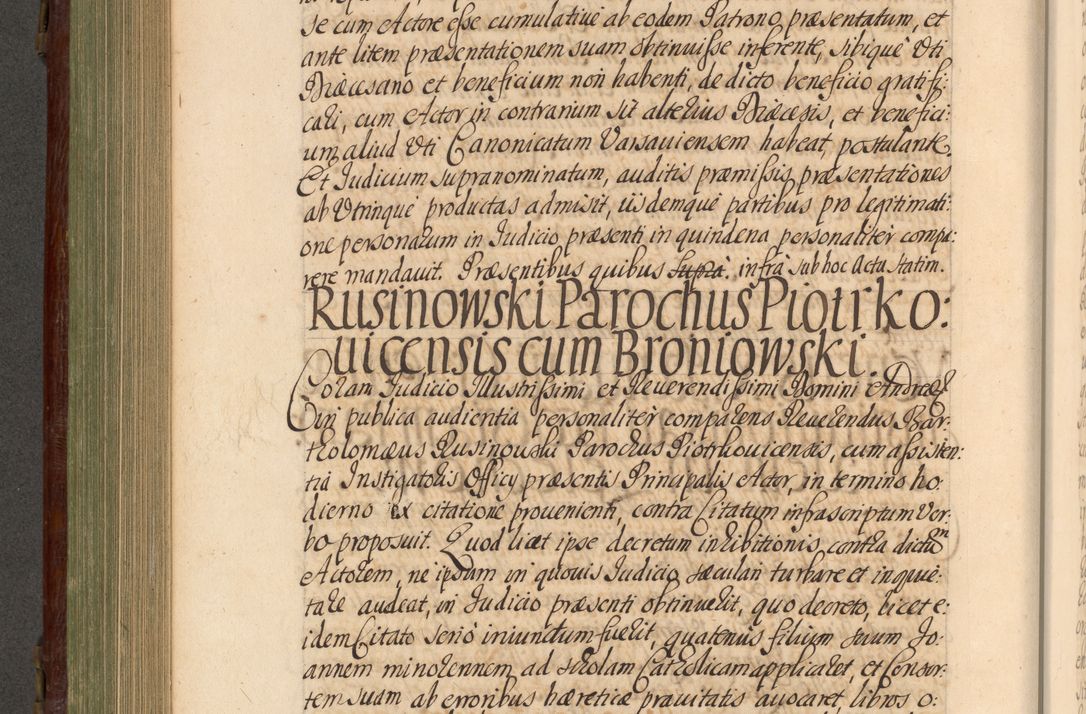 se cum Actore esse cumulativé ab eodem Patrono præsentatum, et
ante litem præsentationem suam obtinuisse inferente, sibiqué Vti
Diæcesano et beneficium non habenti, de dicto beneficio gratifi:
cari, cum Actor in contrarium sit alterius Diæcesis, et benefici:
um aliud Vti Canonicatum Varsaviensem habeat, postulante.
Et Judicium supranominatum, auditis præmissis, præsentationes
ab Vtrinqué productas admisit, iisdemqué partibus pro legitimati:
one personarum in Judicio præsenti in quindena personalitèr compa:
rere mandavit. Præsentibus quibus supra. infrà sub hoc Actu statim.
Rusinowski Parochus Piotrko:
vicensis cum Broniowski.
Coram Judicio Illustrissimi et Reverendissimi Domini Andreæ
in publica audientia personalitèr comparens Reverendus Bar:
tholomæus Rusinowski Parochus Piotrkovicensis, cum assisten:
tia Instigatoris Officy præsentis Principalis Actor, in termino ho:
dierno ex citatione provenienti, contra Citatum infrascriptum Ver:
bo proposuit. Quod licet ipse decretum inhibitionis contra dictum
Actorem, ne ipsum in quovis Judicio sæculari turbare et inquie:
tare audeat, in Judicio præsenti obtinuerit, quo decreto, licet e:
idem Citato serió iniunctum fuerit, quatenus filium suum Jo:
annem minorennem ad scholam Catholicam applicaret, et Consor:
tem suam ab erroribus hæreticæ pravitatis avocaret, libros o: